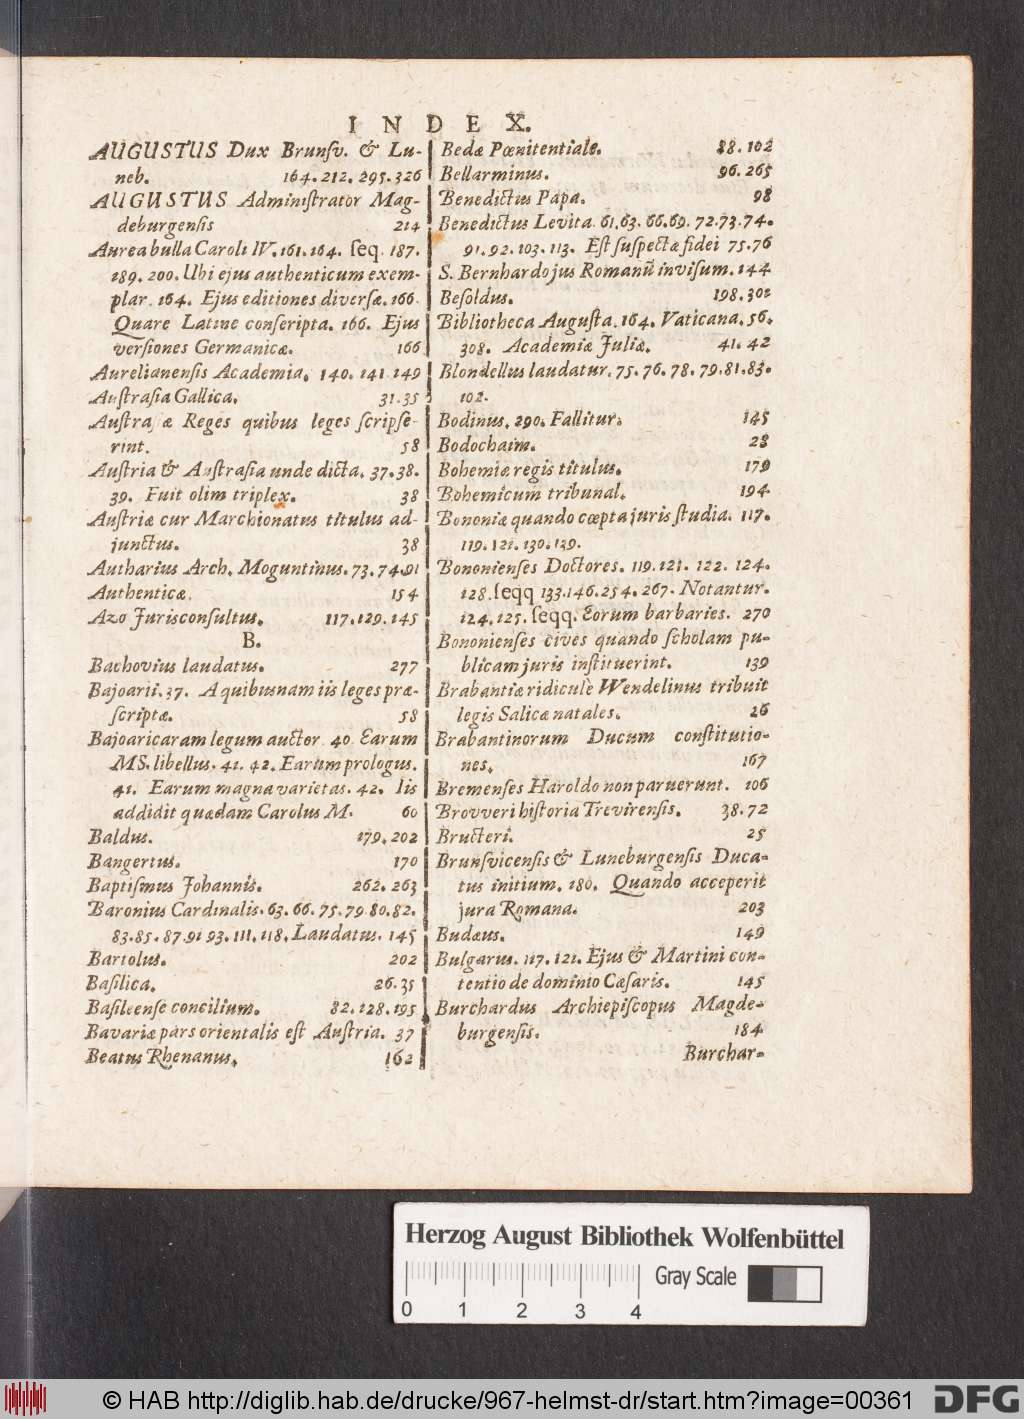 INDEX.
AUGUSTUS Dux Brunſv. & Lu-
neb. 164. 212. 295. 326
AUGUSTUS Adminiſtrator Mag-
deburgenſis 214
Aurea bulla Caroli IV. 161. 164. ſeq. 187.
189. 200. Ubi ejus authenticum exem-
plar. 164. Ejus editiones diverſæ. 166.
Quare Latine conſcripta. 166. Ejus
verſiones Germanicæ. 166
Aurelianenſis Academia. 140. 141 149
Auſtraſia Gallica. 31. 35
Reges quibus leges ſcripſe-
rint. 58
Auſtria & Auſtraſia unde dicta. 37. 38.
39. Fuit olim triplex. 38
Auſtriæ cur Marchionatus titulus ad-
junctus. 38
Autharius Arch. Moguntinus. 73. 74. 91
Authenticæ. 154
Azo Jurisconſultus. 117. 129. 145
B.
Bachovius laudatus. 277
Bajoarii. 37. A quibusnam iis leges præ-
ſcriptæ. 58
Bajoaricaram legum auctor. 40. Earum
MS. libellus. 41. 42. Earum prologus.
41. Earum magna varietas. 42. Iis
addidit quædam Carolus M. 60
Baldus. 179. 202
Bangertus. 170
Baptiſmus Johannis. 262. 263
Baronius Cardinalis. 63. 66. 75. 79. 80. 82.
83. 85. 87. 91 93. 111. 118. Laudatus. 145
Bartolus. 202
Baſilica. 26. 35
Baſileenſe concilium. 82. 128. 195
Bavariæ pars orientalis eſt Auſtria. 37
Beatus Rhenanus. 162
Bedæ Pœnitentiale. 88. 102
Bellarminus. 96. 265
Benedictus Papa. 98
Benedictus Levita. 61. 63. 66. 69. 72. 73. 74.
91. 92. 103. 113. Eſt ſuſpectæ fidei 75. 76
S. Bernhardo jus Romanū inviſum. 144
Beſoldus. 198. 302
Bibliotheca Auguſta. 164. Vaticana. 56.
308. Academiæ Juliæ. 41. 42
Blondellus laudatur. 75. 76. 78. 79. 81. 83.
102.
Bodinus. 290. Fallitur. 145
Bodochaim. 28
Bohemiæ regis titulus. 179
Bohemicum tribunal. 194
Bononiæ quando cœpta juris ſtudia. 117.
119. 121. 130. 139.
Bononienſes Doctores. 119. 121. 122. 124.
128. ſeqq 133. 146. 254. 267. Notantur.
124. 125. ſeqq. Eorum barbaries. 270
Bononienſes cives quando ſcholam pu-
blicam juris inſtituerint. 139
Brabantiæ ridiculè Wendelinus tribuit
legis Salicæ natales. 26
Brabantinorum Ducum conſtitutio-
nes. 167
Bremenſes Haroldo non paruerunt. 106
Brovveri hiſtoria Trevirenſis. 38. 72
Bructeri. 25
Brunſvicenſis & Luneburgenſis Duca-
tus initium. 180. Quando acceperit
jura Romana. 203
Budæus. 149
Bulgarus. 117. 121. Ejus & Martini con-
tentio de dominio Cæſaris. 145
Burchardus Archiepiſcopus Magde-
burgenſis. 184
Burchar-
Herzog August Bibliothek Wolfenbüttel
Gray Scale
0 1 2 3 4
© HAB http://diglib.hab.de/drucke/967-helmst-dr/start.htm?image=00361
DFG